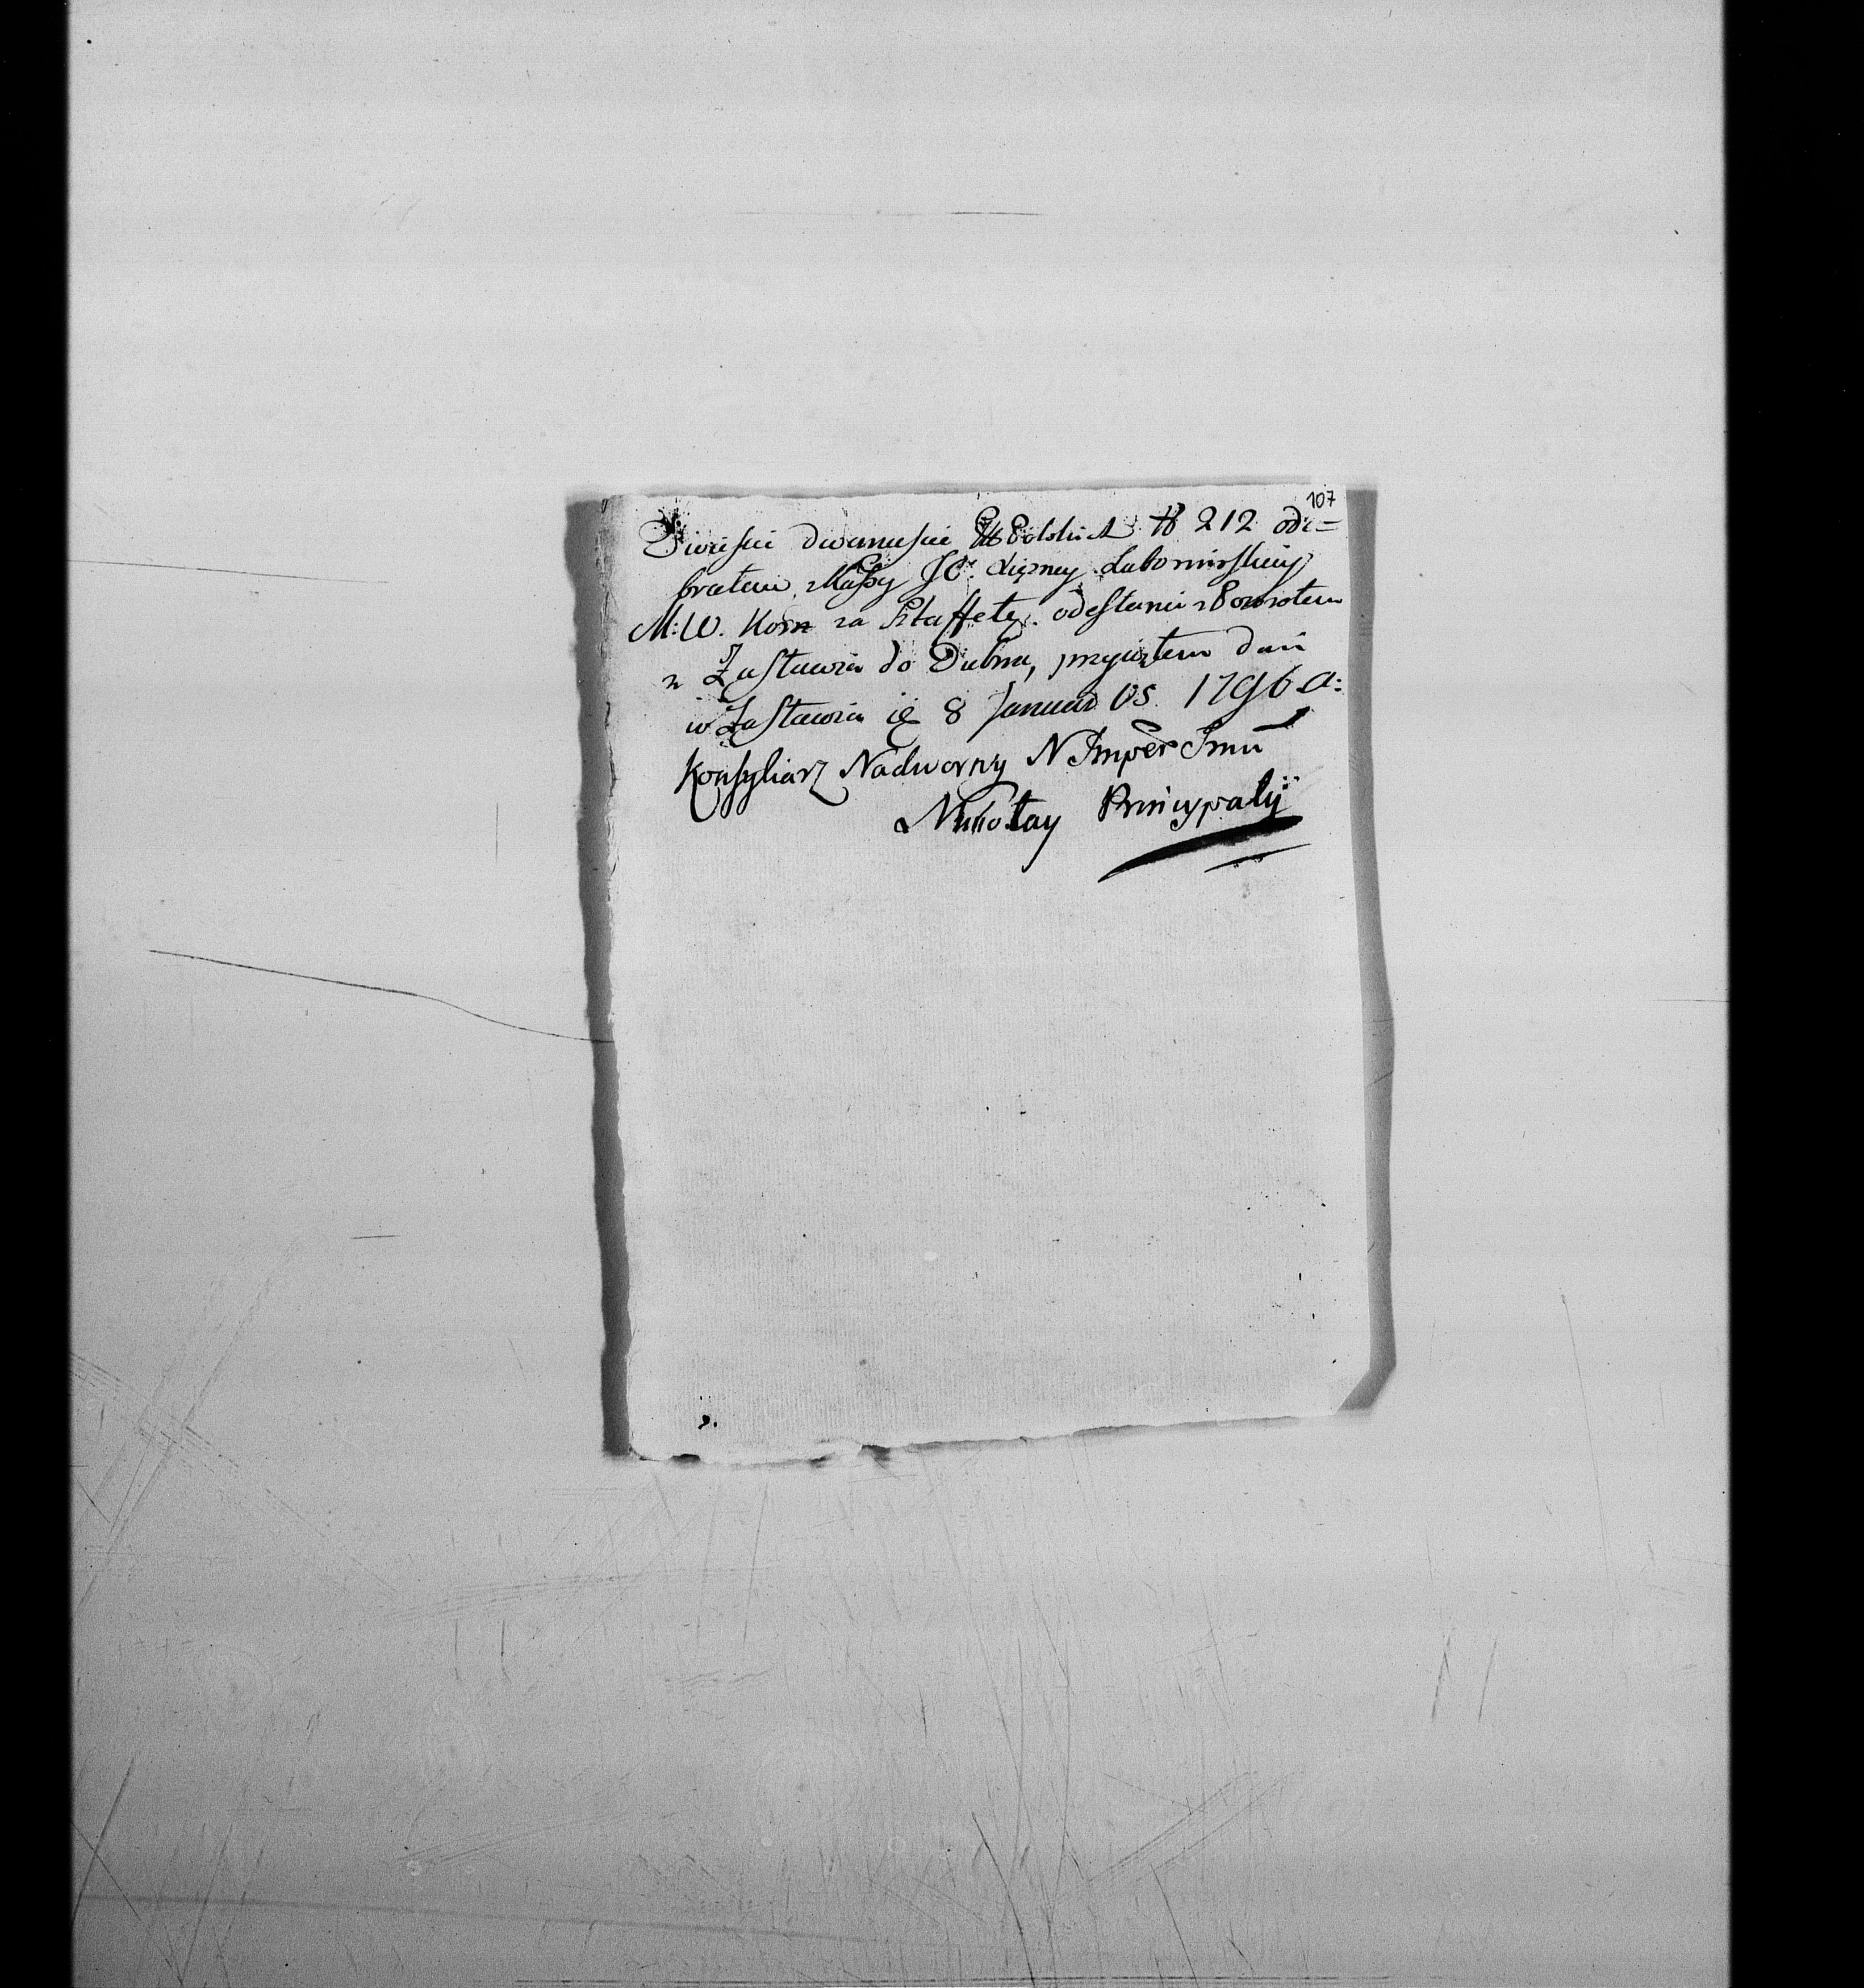 107
Dwieście dwanaście Polskich 212 ode=
brałem Massy JO. Xiężney Lubomirskiey
M: W. Kom za Sztaffetę odesłanie z Powrotem
z Zasławia do Dubna, przyiąłem Dań
w Zasławiu 8 Januar VS. 1796 a:
Konsyliarz Nadworny N Imper Imu
Mikołay Pryncypatÿ